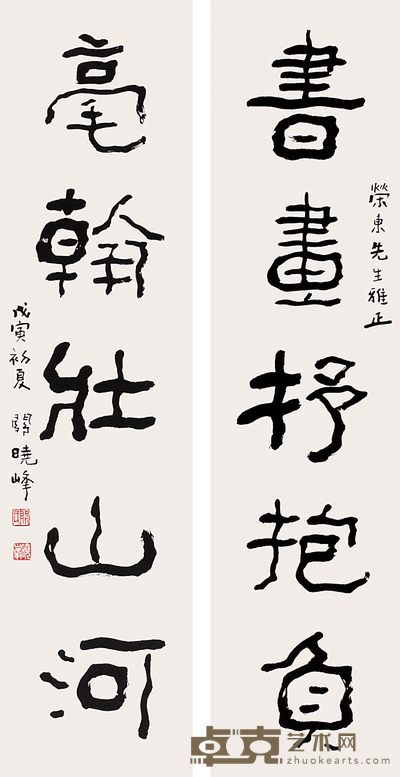 榮東先生雅正
書畫抒抱負
毫翰壯山河
戊寅初夏 關曉峰
卓克艺术网
zhuokearts.com